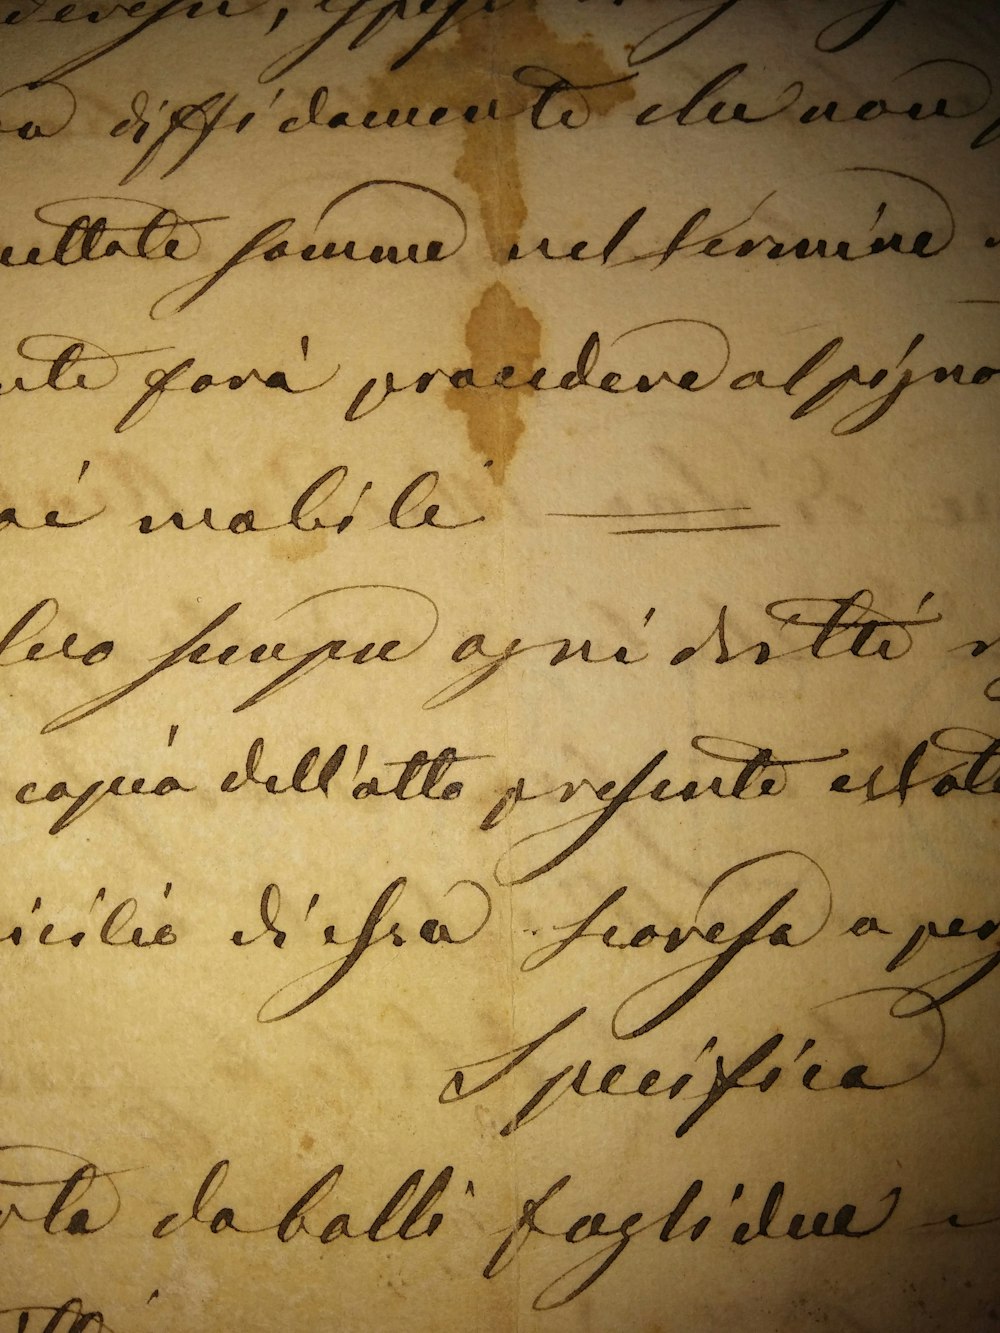 a diffidamente che non
nettate somme nel termine
nte farà procedere al pigno
ai mobile
lvo sempre ogni dritto
copia dell'atto presente è stata
icilio di essa Scovessa a per
Specifica
rta da bolli fogli due